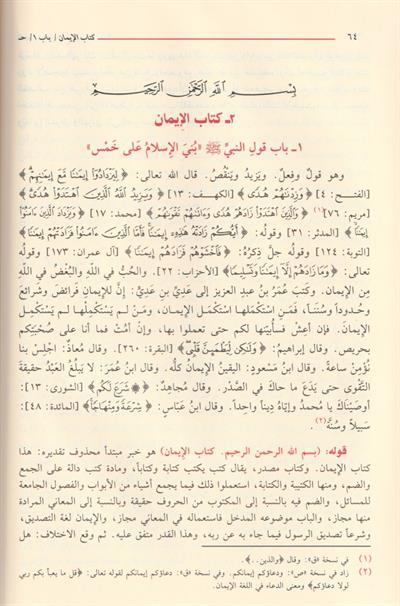 ٦٤ كتاب الإيمان / باب ١ / حـ
بِسْمِ اللهِ الرَّحْمَنِ الرَّحِيمِ
٢ـ كتاب الإيمان
١ـ باب قولِ النبيِّ ﷺ «بُنيَ الإسلامُ على خَمْس»
وهو قولٌ وفعلٌ. ويَزيدُ ويَنقُصُ. قال الله تعالى: ﴿لِيَزْدَادُوٓا۟ إِيمَٰنًا مَّعَ إِيمَٰنِهِمْ﴾
[الفتح: ٤] ﴿وَزِدْنَٰهُمْ هُدًى﴾ [الكهف: ١٣] ﴿وَيَزِيدُ ٱللَّهُ ٱلَّذِينَ ٱهْتَدَوْا۟ هُدًى﴾
[مريم: ٧٦] (١) ﴿وَٱلَّذِينَ ٱهْتَدَوْا۟ زَادَهُمْ هُدًى وَءَاتَىٰهُمْ تَقْوَىٰهُمْ﴾ [محمد: ١٧] ﴿وَيَزْدَادَ ٱلَّذِينَ ءَامَنُوٓا۟
إِيمَٰنًا﴾ [المدثر: ٣١] وقوله: ﴿أَيُّكُمْ زَادَتْهُ هَٰذِهِۦٓ إِيمَٰنًا فَأَمَّا ٱلَّذِينَ ءَامَنُوا۟ فَزَادَتْهُمْ إِيمَٰنًا﴾
[التوبة: ١٢٤] وقوله جلَّ ذِكرُهُ: ﴿فَٱخْشَوْهُمْ فَزَادَهُمْ إِيمَٰنًا﴾ [آل عمران: ١٧٣] وقوله
تعالى: ﴿وَمَا زَادَهُمْ إِلَّآ إِيمَٰنًا وَتَسْلِيمًا﴾ [الأحزاب: ٢٢]. والحبُّ في اللهِ والبُغْضُ في اللهِ
مِنَ الإيمان. وكتبَ عمَرُ بنُ عبدِ العزيز إلى عَدِيِّ بنِ عَدِيٍّ: إنَّ للإيمانِ فَرائضَ وشَرائعَ
وحُدوداً وسُنَناً، فَمَنِ استَكمَلَها استَكمَلَ الإيمان، ومَنْ لم يَستَكْمِلْها لم يَستكمِلِ
الإيمان. فإن أعِشْ فسأُبيِّنُها لكم حتى تعملوا بها، وإن أمُتْ فما أنا على صُحْبَتِكم
بحريص. وقال إبراهيمُ: ﴿وَلَٰكِن لِّيَطْمَئِنَّ قَلْبِى﴾ [البقرة: ٢٦٠]. وقال مُعاذٌ: اجْلِسْ بنا
نُؤْمِنْ ساعةً. وقال ابنُ مَسْعودٍ: اليقينُ الإيمانُ كلُّه. وقال ابنُ عُمَرَ: لا يَبلُغُ العَبْدُ حقيقةَ
التَّقْوى حتى يَدَعَ ما حاكَ في الصَّدْر. وقال مُجاهِدٌ: ﴿۞ شَرَعَ لَكُم﴾ [الشورى: ١٣]:
أوصَيْناكَ يا محمدُ وإيَّاهُ دِيناً واحِداً. وقال ابنُ عبّاسٍ: ﴿شِرْعَةً وَمِنْهَاجًا﴾ [المائدة: ٤٨]:
سَبيلاً وسُنَّةً (٢).
قوله: (بسم الله الرحمن الرحيم. كتاب الإيمان) هو خبر مبتدأ محذوف تقديره: هذا
كتاب الإيمان. وكتاب مصدر، يقال كتب يكتب كتابة وكتاباً، ومادة كتب دالة على الجمع
والضم، ومنها الكتيبة والكتابة، استعملوا ذلك فيما يجمع أشياء من الأبواب والفصول الجامعة
للمسائل، والضم فيه بالنسبة إلى المكتوب من الحروف حقيقة وبالنسبة إلى المعاني المرادة
منها مجاز، والباب موضوعه المدخل فاستعماله في المعاني مجاز، والإيمان لغة التصديق،
وشرعاً تصديق الرسول فيما جاء به عن ربه، وهذا القدر متفق عليه. ثم وقع الاختلاف: هل
(١) في نسخة «ق»: وقال ﴿والذين..﴾.
(٢) زاد في نسخة «ص»: ودعاؤكم إيمانكم. وفي نسخة «ق»: دعاؤكم إيمانكم لقوله تعالى: ﴿قل ما يعبأ بكم ربي
لولا دعاؤكم﴾ ومعنى الدعاء في اللغة الإيمان.